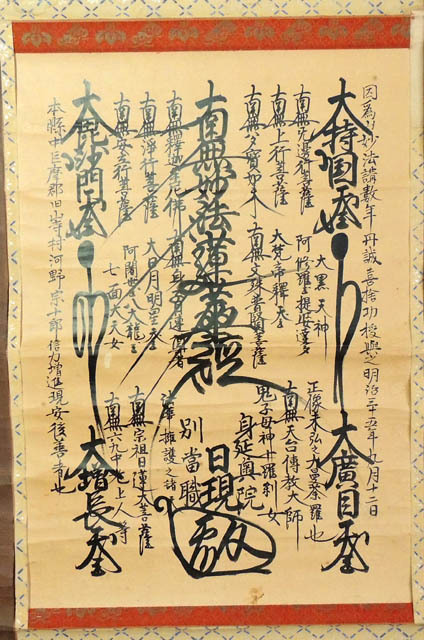 因為妙法講数年丹誠喜捨功授與之明治三十五年九月十二日
大持国天王
大廣目天王
南無无邊行菩薩
南無上行菩薩
南無多寳如来
大黒天神
阿修羅王 提婆達多
大梵帝釋天王
南無文殊普賢菩薩
正像未弘之大曼荼羅也
南無天台傳教大師
鬼子母神十羅刹女
身延奥院
南無妙法蓮華経
日現
別當職
南無釋迦牟尼佛
南無淨行菩薩
南無安立行菩薩
南無身子目連尊者
大日月明星天
阿闍世王 大龍王
七面大天女
法華擁護之諸
南無宗祖日蓮大菩薩
南無六九老上人等
大毘沙門天王
大増長天王
本縣中巨摩郡旧 村河野宗十郎信力増進現安後善者也